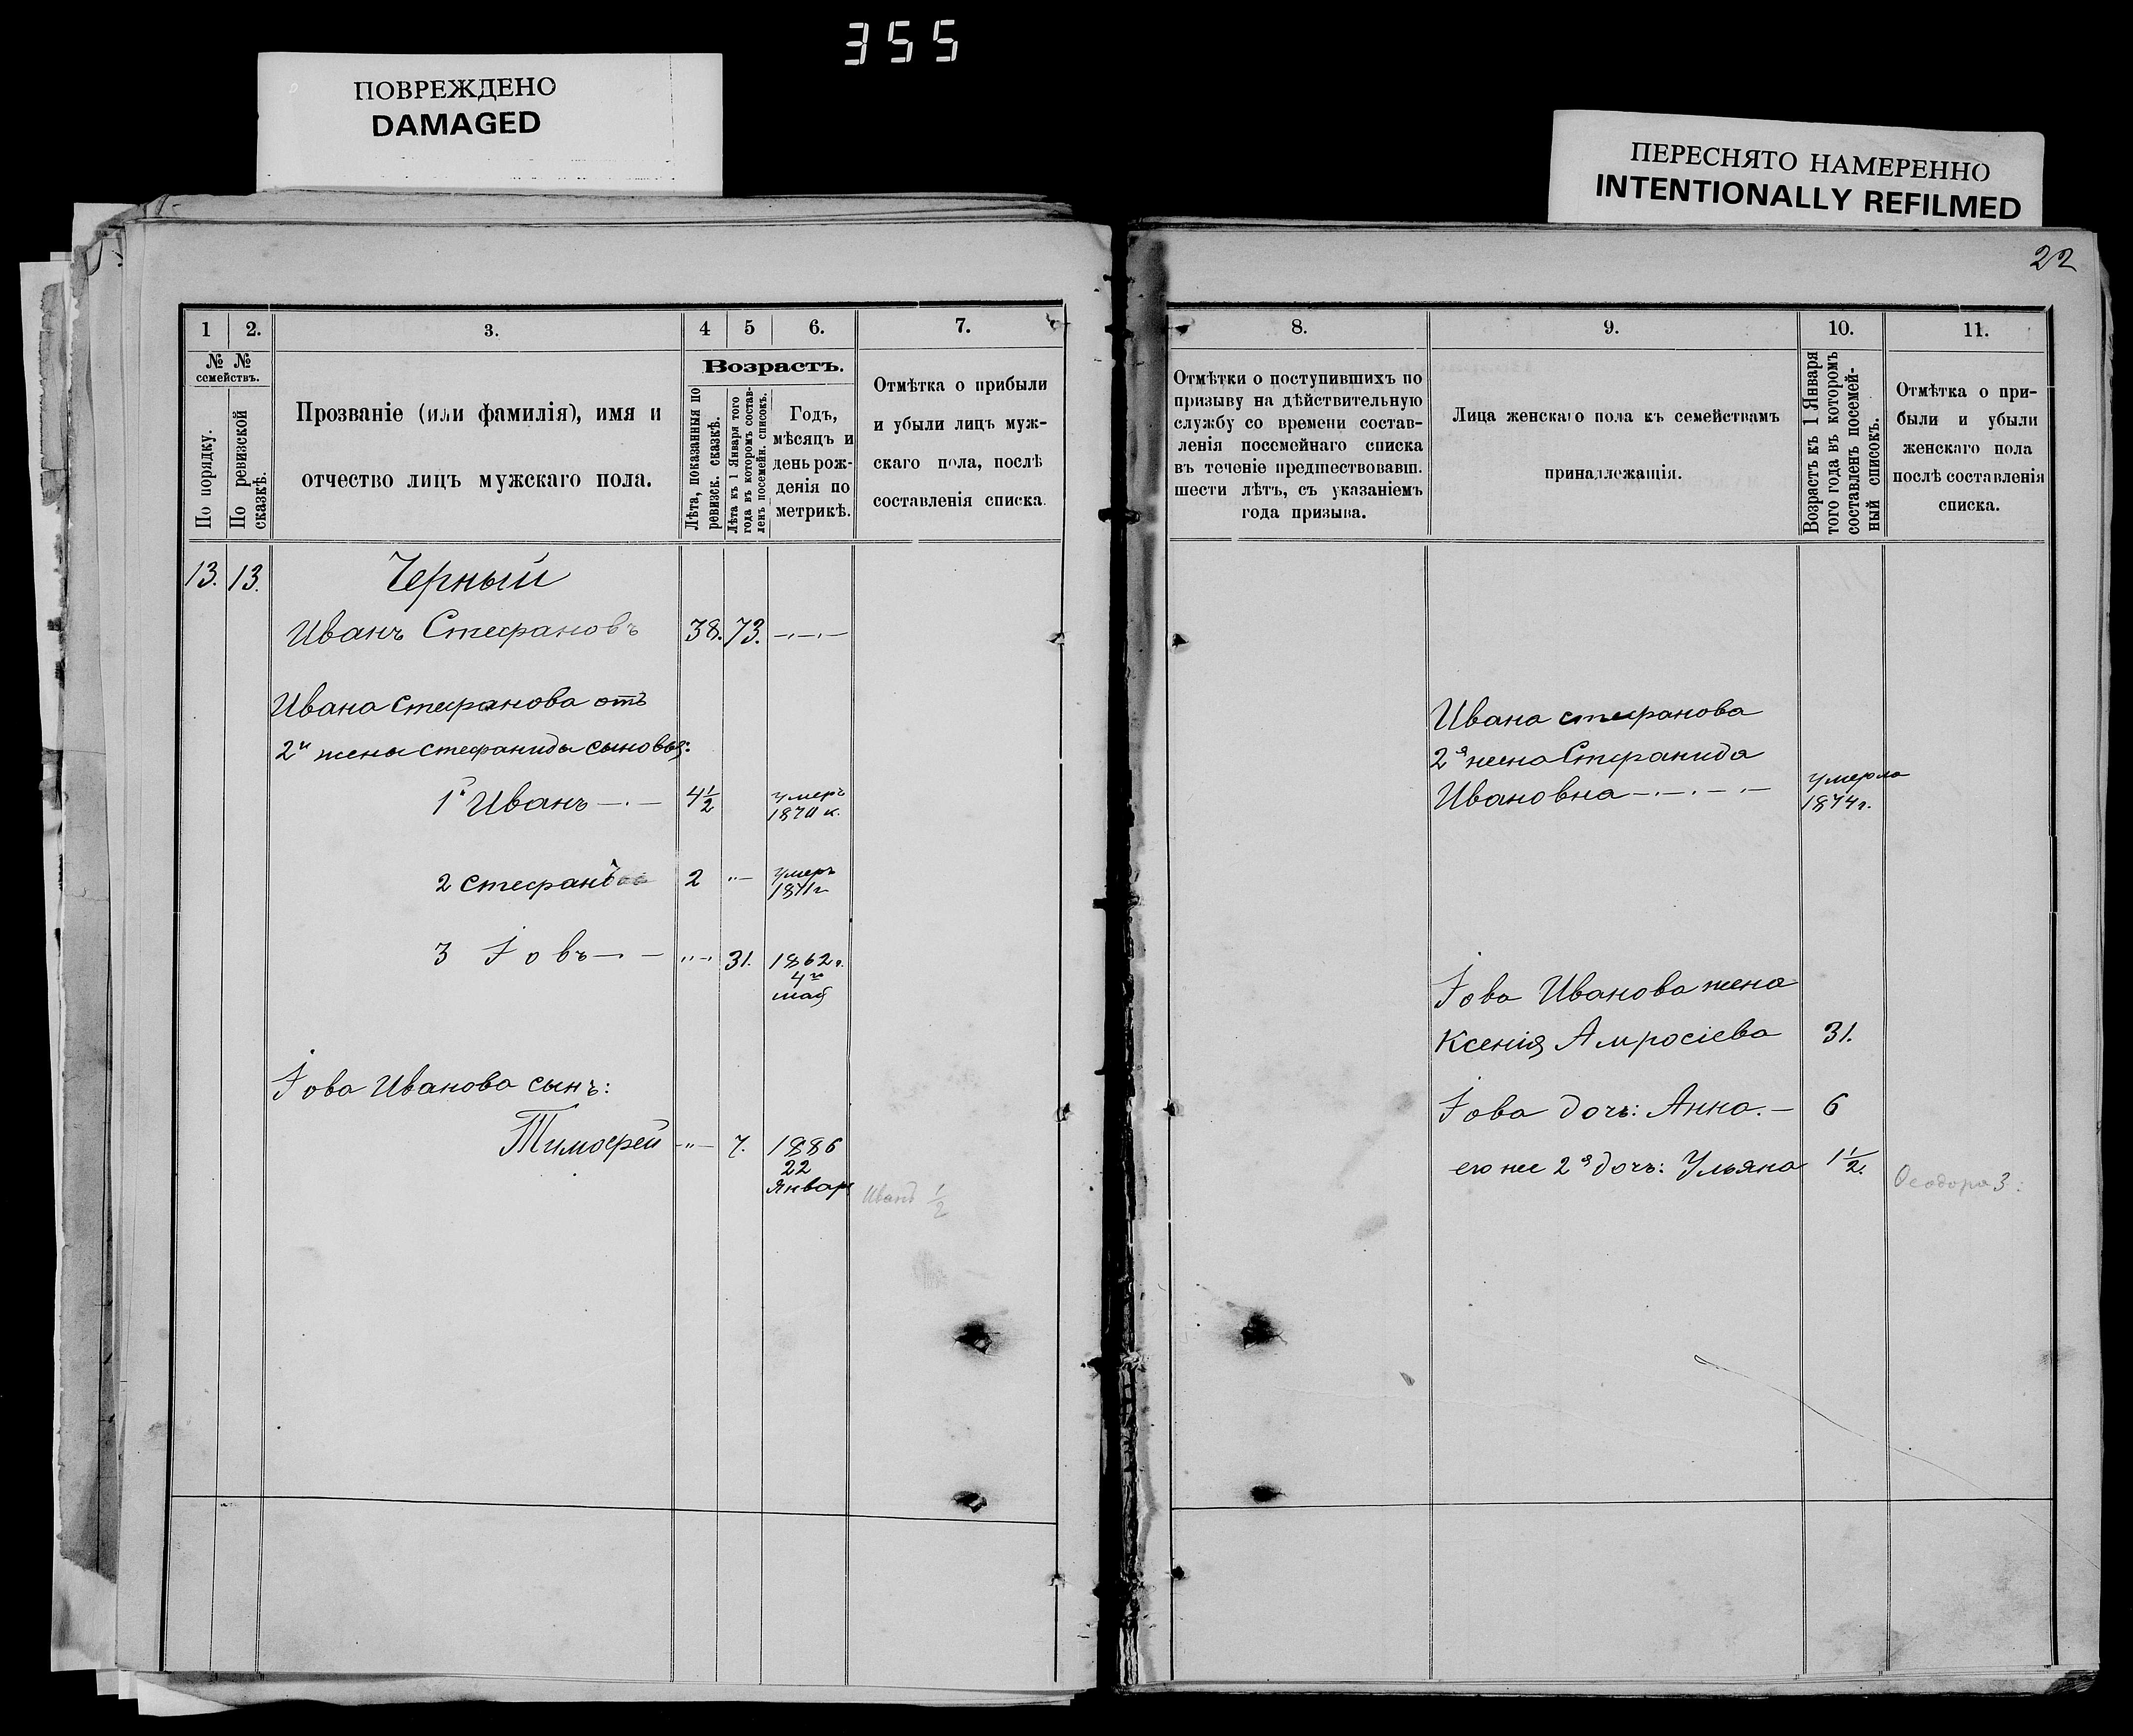 355
ПОВРЕЖДЕНО
DAMAGED
ПЕРЕСНЯТО НАМЕРЕННО
INTENTIONALLY REFILMED
22
1 2. 3. 4 5 6. 7.
№ № семействъ.
По порядку.
По ревизской сказкѣ.
Прозваніе (или фамилія), имя и
отчество лицъ мужскаго пола.
Возрастъ.
Лѣта, показанныя по
ревизск. сказкѣ.
Лѣта къ 1 Января того
года въ которомъ состав-
ленъ посемейн. списокъ.
Годъ,
мѣсяцъ и
день рож-
денія по
метрикѣ.
Отмѣтка о прибыли
и убыли лицъ муж-
скаго пола, послѣ
составленія списка.
13. 13. Черный
Иванъ Стефановъ 38. 73.
Ивана Стефанова отъ
2й жены Стефаниды сыновья:
1й Иванъ 4½ умеръ
2 Стефанъ 2 умеръ
1871г
3 Іовъ 31. 1862г.
4го
мая
Іова Иванова сынъ:
Тимофей 7. 1886
22
Январ
Иванъ ½
8. 9. 10. 11.
Отмѣтки о поступившихъ по
призыву на дѣйствительную
службу со времени состав-
ленія посемейнаго списка
въ теченіе предшествовавш.
шести лѣтъ, съ указаніемъ
года призыва.
Лица женскаго пола къ семействамъ
принадлежащія.
Возрастъ къ 1 Января
того года въ которомъ
составленъ посемей-
ный списокъ.
Отмѣтка о при-
были и убыли
женскаго пола
послѣ составленія
списка.
Ивана Стефанова
2я жена Стефанида
Ивановна умерла
1874г.
Іова Иванова жена
Ксенія Амросіева 31.
Іова дочь: Анна. 6
его же 2я дочь: Ульяна 1½.
Ѳеодора 3: